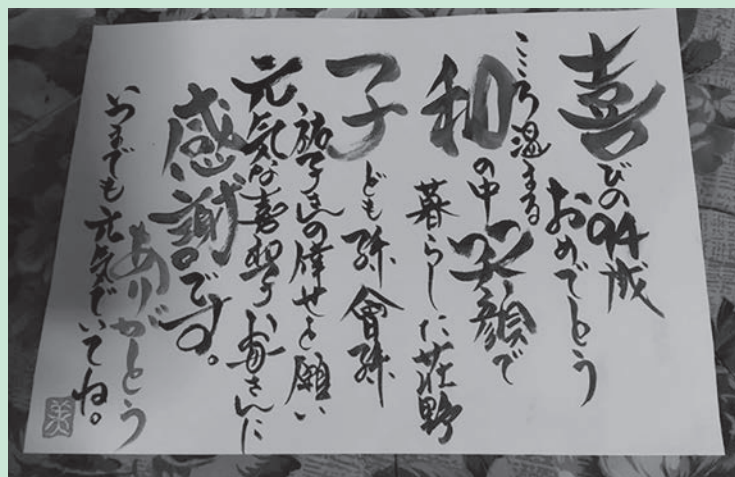 喜びの94才
おめでとう
こころ温まる
和の中笑顔で
暮らした荘野
子ども孫曾孫
祐子達の倖せを願い
元気な喜和子お母さんに
感謝です。
ありがとう
いつまでも元気でいてね。
美